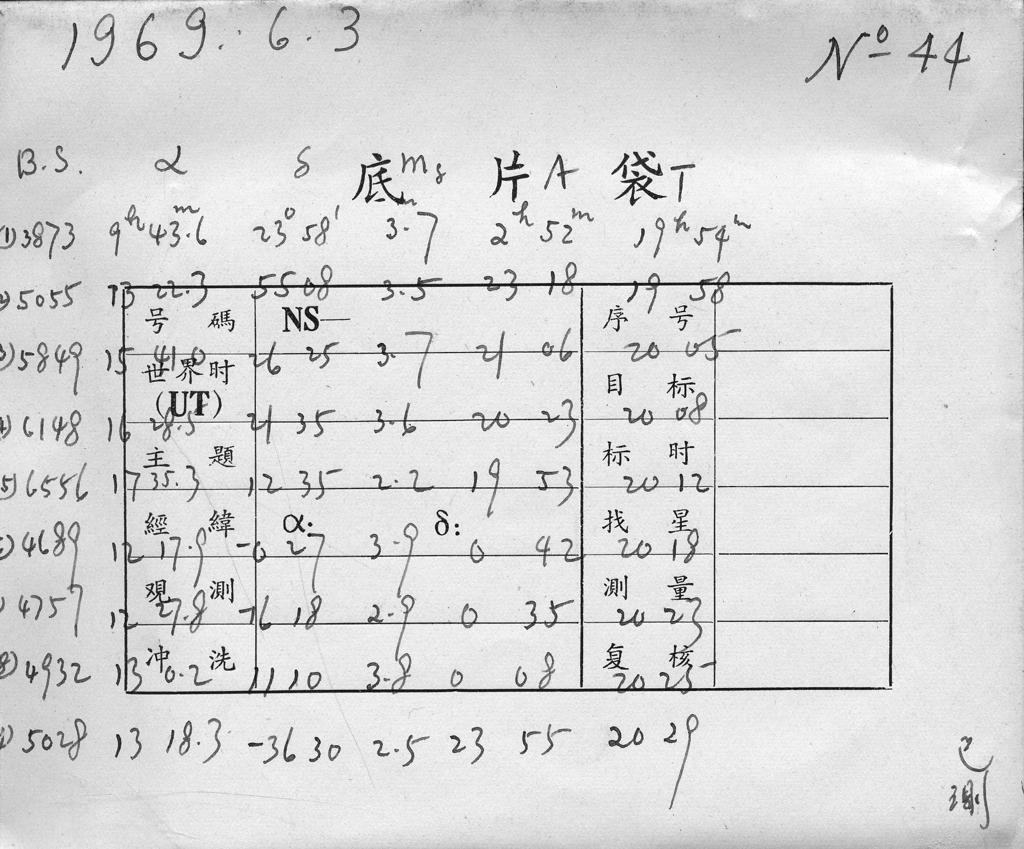 1969. 6. 3
Nº 44
底片袋
B.S. α δ m A T
(1) 3873 9ʰ 43.6ᵐ 23° 58′ 3.7 2ʰ 52ᵐ 19ʰ 54ᵐ
5055 13 22.3 55 08 3.5 23 18 19 58
号碼 NS— 序号
5849 15 41.0 26 25 3.7 21 06 20 05
世界时 (UT) 目标
6148 16 28.5 21 35 3.6 20 23 20 08
主題 标时
6556 17 35.3 12 35 2.2 19 53 20 12
經緯 α: δ: 找星
4689 12 17.9 -0 27 3.9 0 42 20 18
观測 測量
4757 12 27.8 -16 18 2.9 0 35 20 23
冲洗 复核
4932 13 0.2 11 10 3.8 0 08 20 25
5028 13 18.3 -36 30 2.5 23 55 20 29
已
测